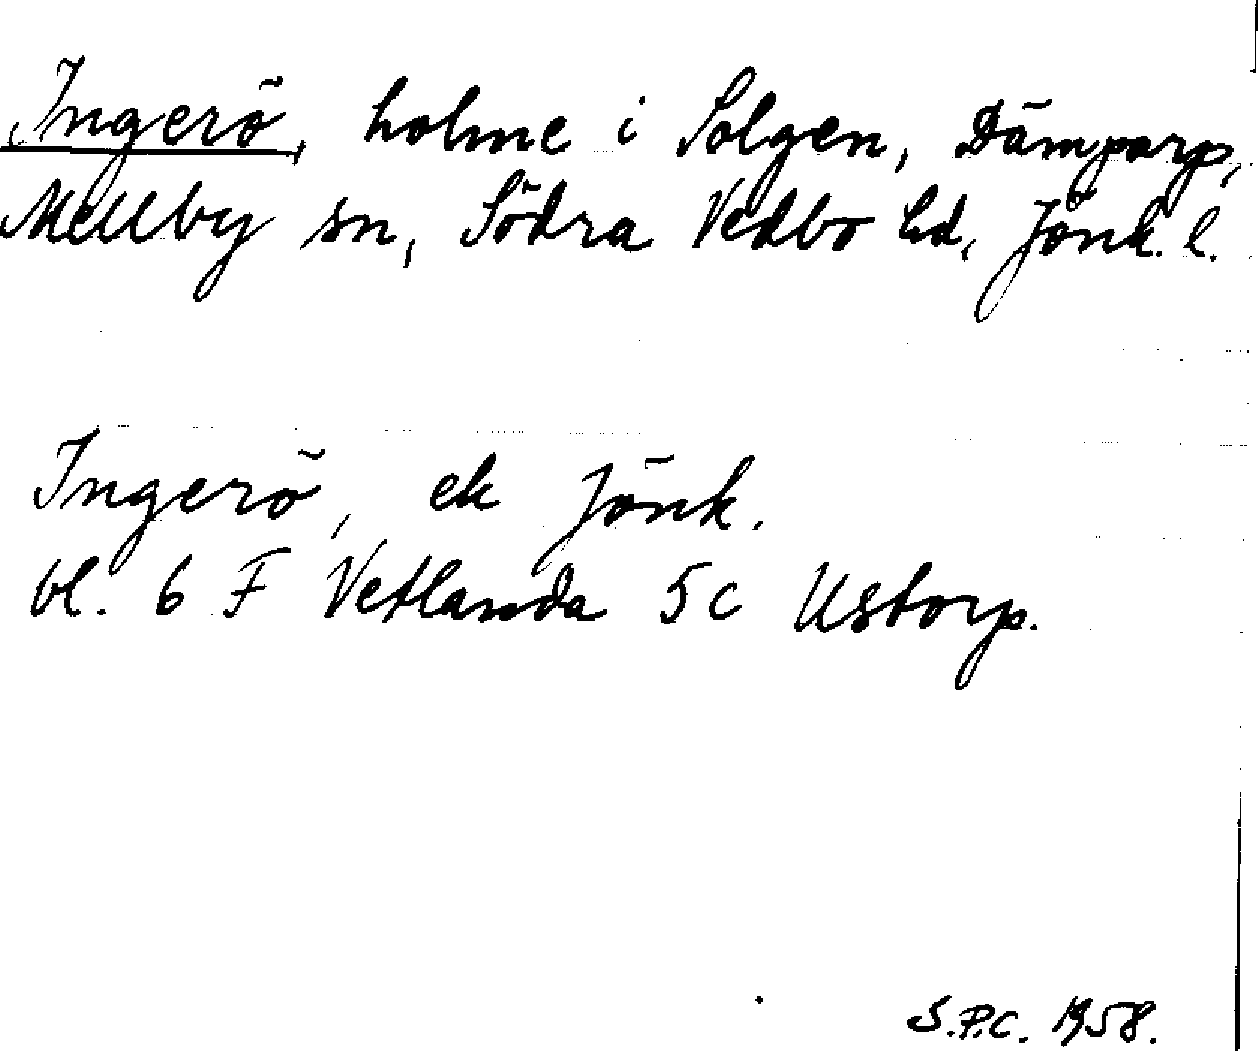 Ingerö, holme i Solgen, Dämparp,
Mellby sn, Södra Vedbo hd, Jönk. l.
Ingerö, ek Jönk.
bl. 6 F Vetlanda 5 c Ustorp.
S.P.C. 1958.